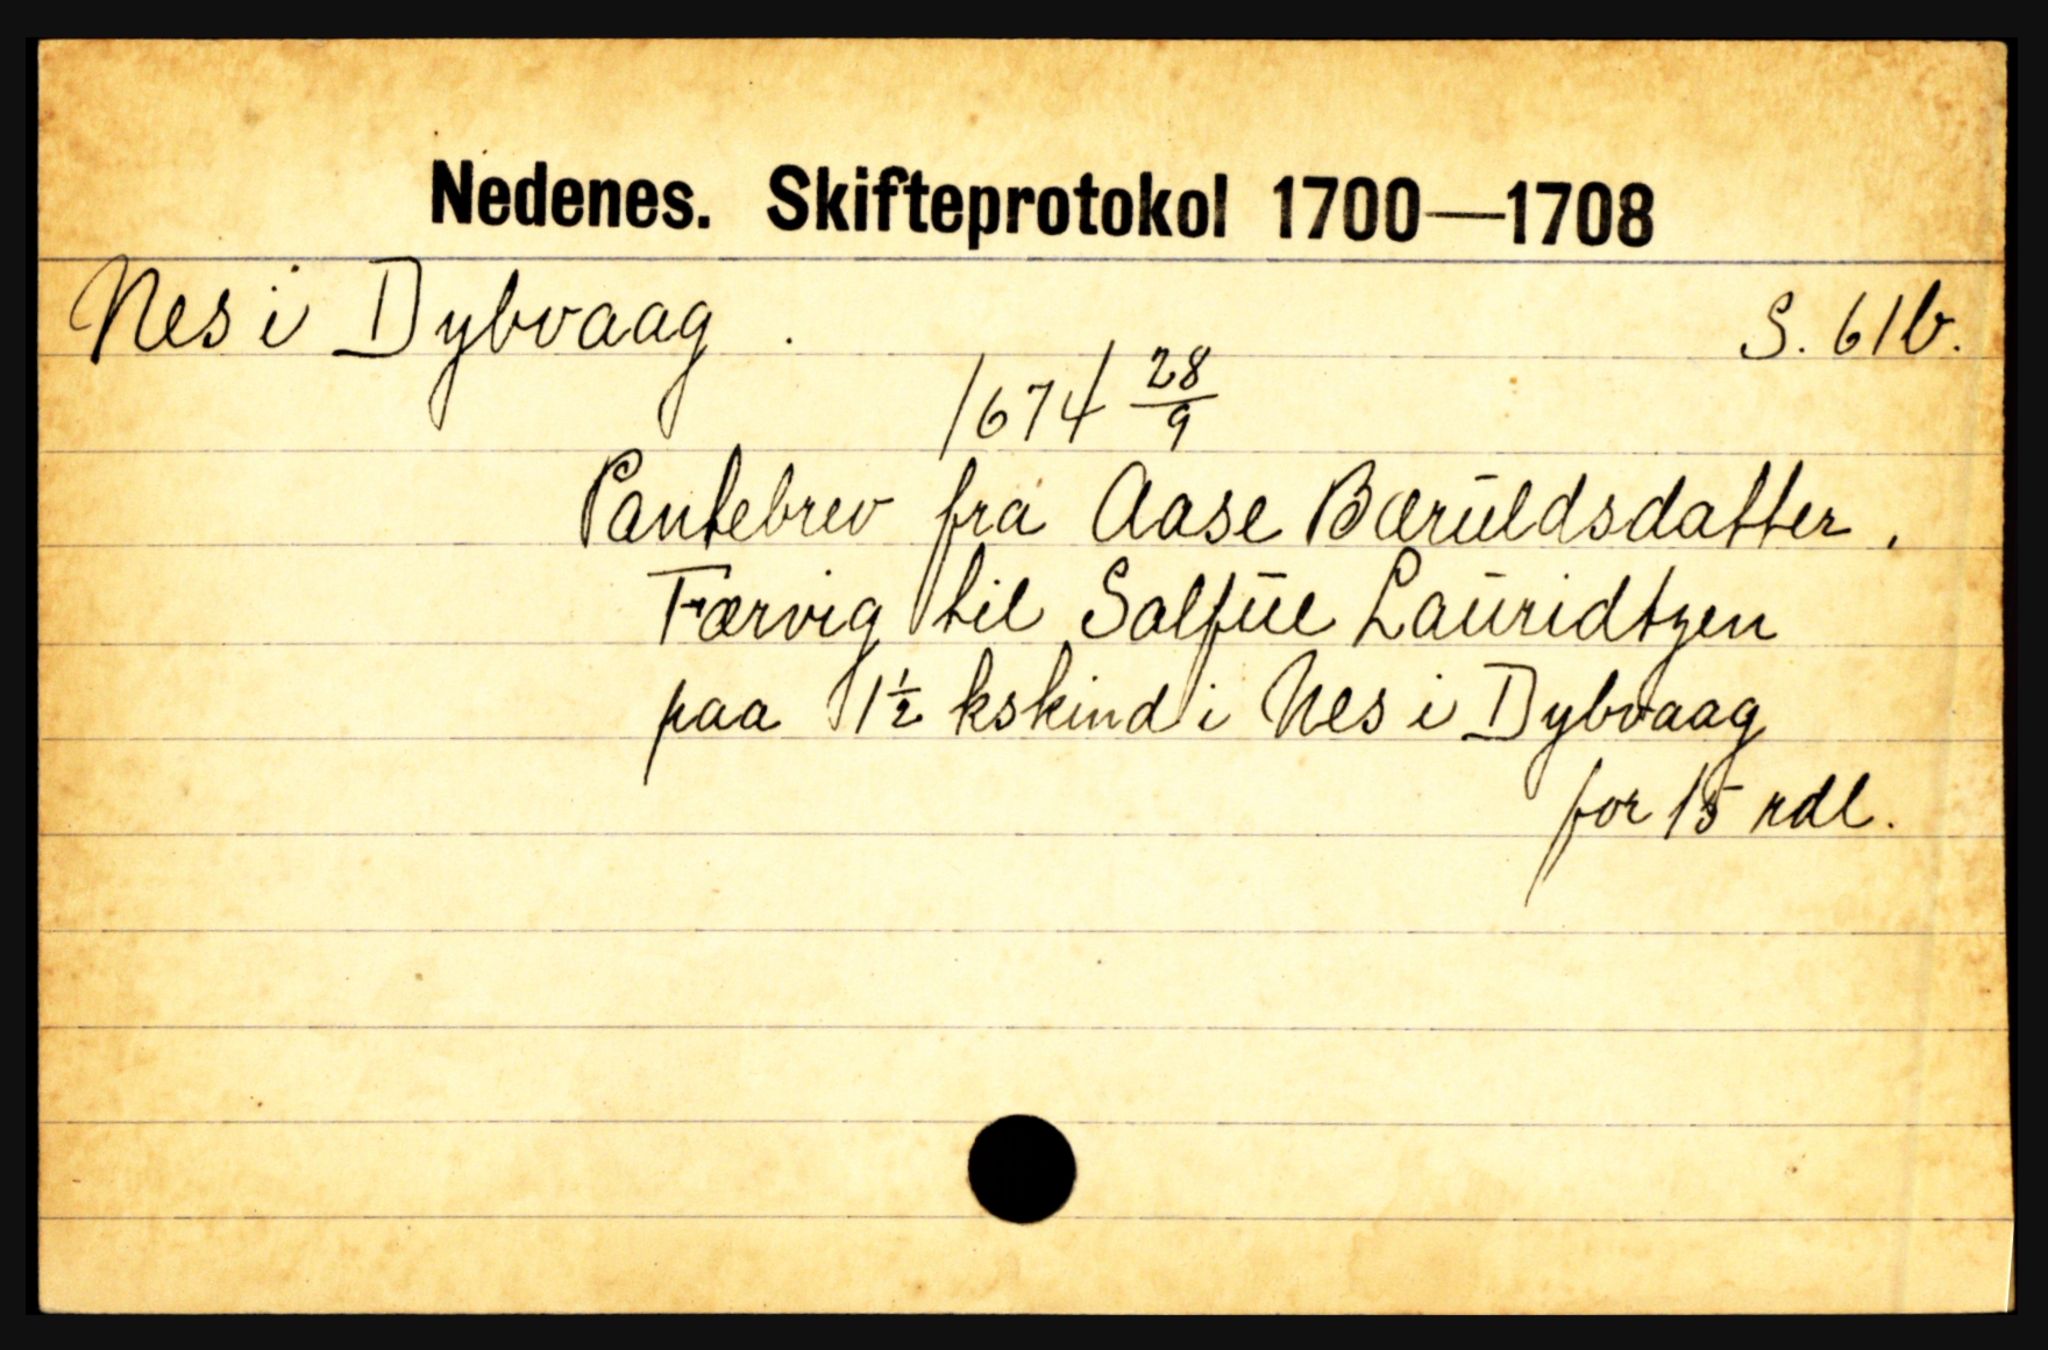 Nedenes. Skifteprotokol 1700—1708
Nes i Dybvaag. S. 61b.
1674 28/9
Pantebrev fra Aase Bæruldsdatter,
Færvig til Salfue Lauridtzen
paa 1½ kskind i Nes i Dybvaag
for 15 rdl.